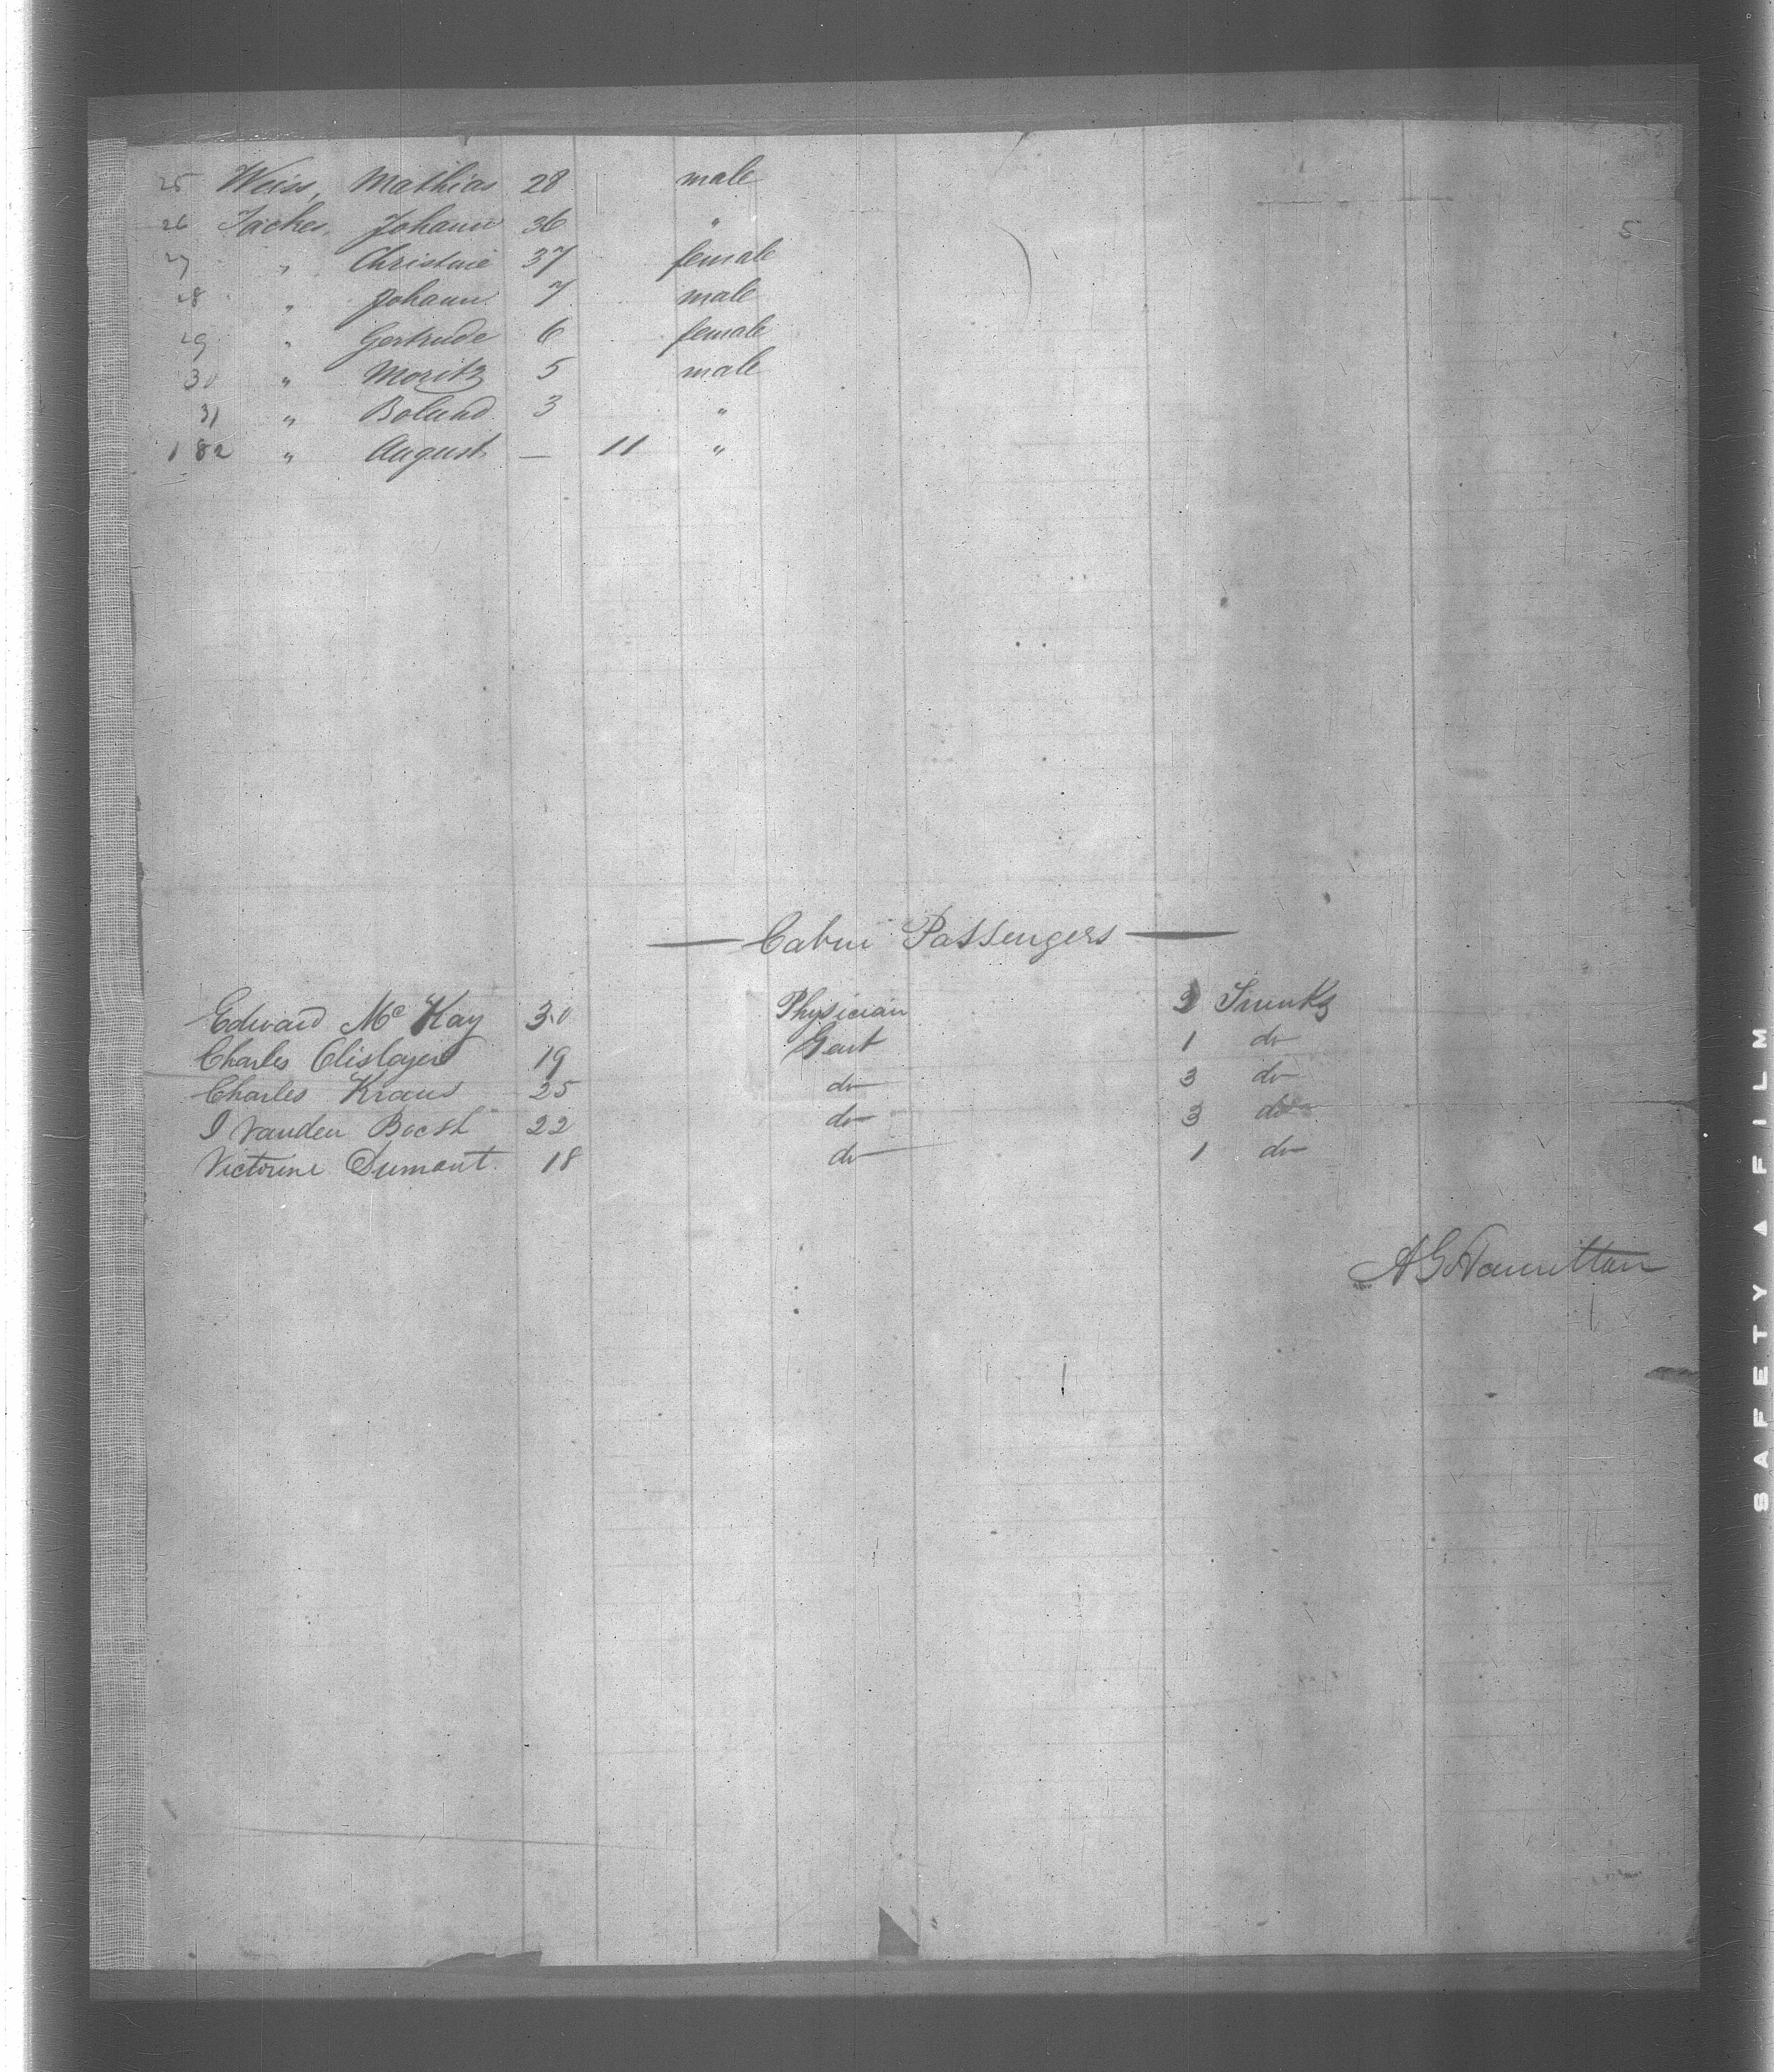 25 Weiss, Mathias 28 male
5
26 Taches, Johann 36 "
27 " Christine 37 female
28 " Johann 7 male
29 " Gertrude 6 female
30 " Moritz 5 male
31 " 3 "
182 " August — 11 "
— Cabin Passengers —
Edward Mc Kay 30 Physician 3 Trunks
Charles 19 Gent 1 do
Charles Kraus 25 do 3 do
I Vanden Boest 22 do 3 do
Victorine Dumont. 18 do 1 do
A G Hamilton
SAFETY A FILM